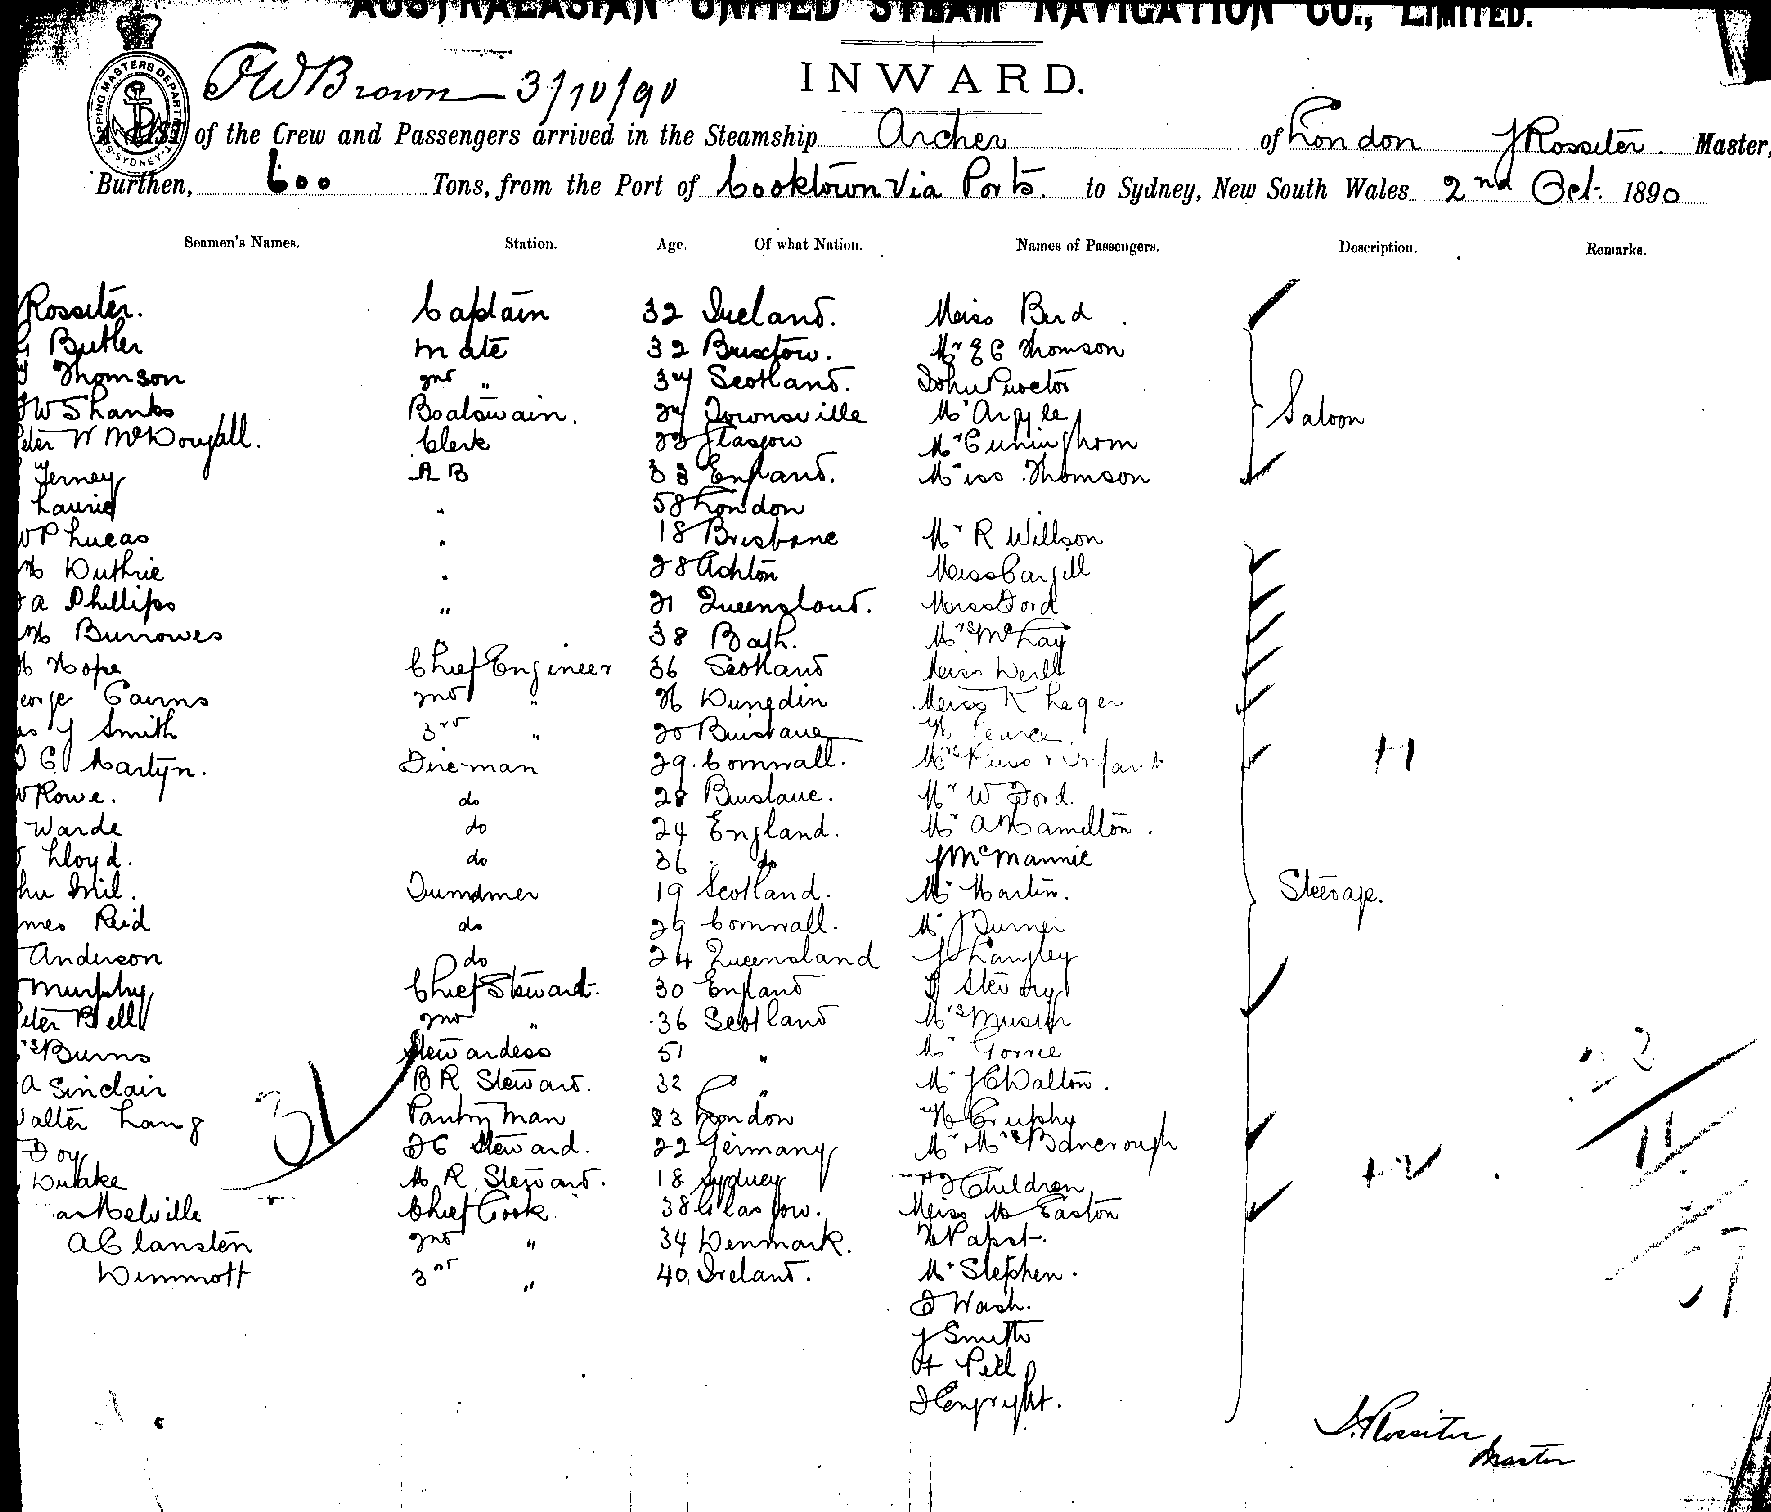 AUSTRALASIAN UNITED STEAM NAVIGATION CO., LIMITED.
INWARD.
WBrown 3/10/90
A LIST of the Crew and Passengers arrived in the Steamship Archer of London J Rossiter Master,
Burthen, 600 Tons, from the Port of Cooktown Via Ports. to Sydney, New South Wales 2nd Oct. 1890
Seamen's Names. Station. Age. Of what Nation. Names of Passengers. Description. Remarks.
Rossiter. Captain 32 Ireland. Miss Bird
Butler Mate 32 Mr E C Thomson
Thomson 2nd " 34 Scotland. John Proctor
W Shanks Boatswain. 24 Townsville Mr Argyle Saloon
eter W McDougall. Clerk 23 Glasgow Mr Cuningham
A B 33 England. Miss Thomson
Laurie " 58 London
W P Lucas " 18 Brisbane Mr R Willson
H Duthrie " 28 Ashton Miss Cargill
A Phillips " 21 Queensland. Miss Ford
H Burrowes 38 Bath. Mrs McKay
H Hope Chief Engineer 36 Scotland Miss
eorge Cairns 2nd " 26 Dunedin Miss K Leger
as J Smith 3rd " 20 Brisbane
C Martyn. Fireman 29. Cornwall. + Infant 11
W Rowe. do 28 Brisbane. Mr W Ford.
Warde do 24 England. Mr A Hamilton.
Lloyd. do 36 do J McMannie
hn Trimmer 19 Scotland. Mr Martin. Steerage.
mes Reid do 29 Cornwall. Mr J Turner
Anderson do 24 Queensland J Langley
Murphy Chief Steward. 30 England
eter Bell 2nd " 36 Scotland Mrs
rs Burns Stewardess 51 " Mr Gorrie
A Sinclair B R Steward. 32 " Mr J C Walton.
alter Lang Pantry Man 23 London
31
Doy F C Steward. 22 Germany Mr Mrs
Drake M R Steward. 18 Sydney Children 12
A Melville Chief Cook. 38 Glasgow. Miss M Easton
A Clansten 2nd " 34 Denmark. Pabst.
Dimmott 3rd " 40. Ireland. Mr Stephen.
Wash.
J Smith
H Pell
Enright.
J. Rossiter
Master